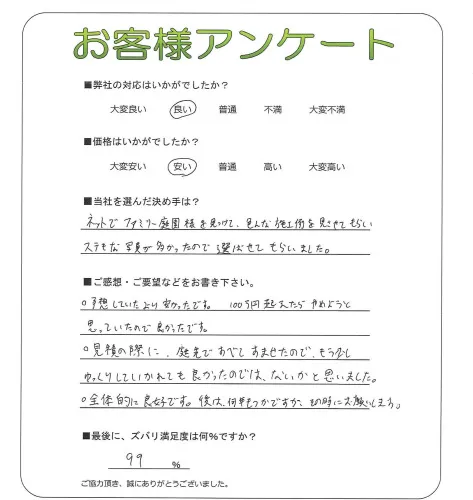 お客様アンケート
■弊社の対応はいかがでしたか？
大変良い 良い 普通 不満 大変不満
■価格はいかがでしたか？
大変安い 安い 普通 高い 大変高い
■当社を選んだ決め手は？
ネットでファミリー庭園様を見つけて、色んな施工例を見させてもらい
ステキな写真が多かったので選ばせてもらいました。
■ご感想・ご要望などをお書き下さい。
○予想していたより安かったです。 100万円超えたらやめようと
思っていたので良かったです。
○見積の際に、庭先ですべてすませたので、もう少し
ゆっくりしていかれても良かったのでは、ないかと思いました。
○全体的に良好です。後は、何年もつかですが、その時にお願いします。
■最後に、ズバリ満足度は何％ですか？
99 %
ご協力頂き、誠にありがとうございました。